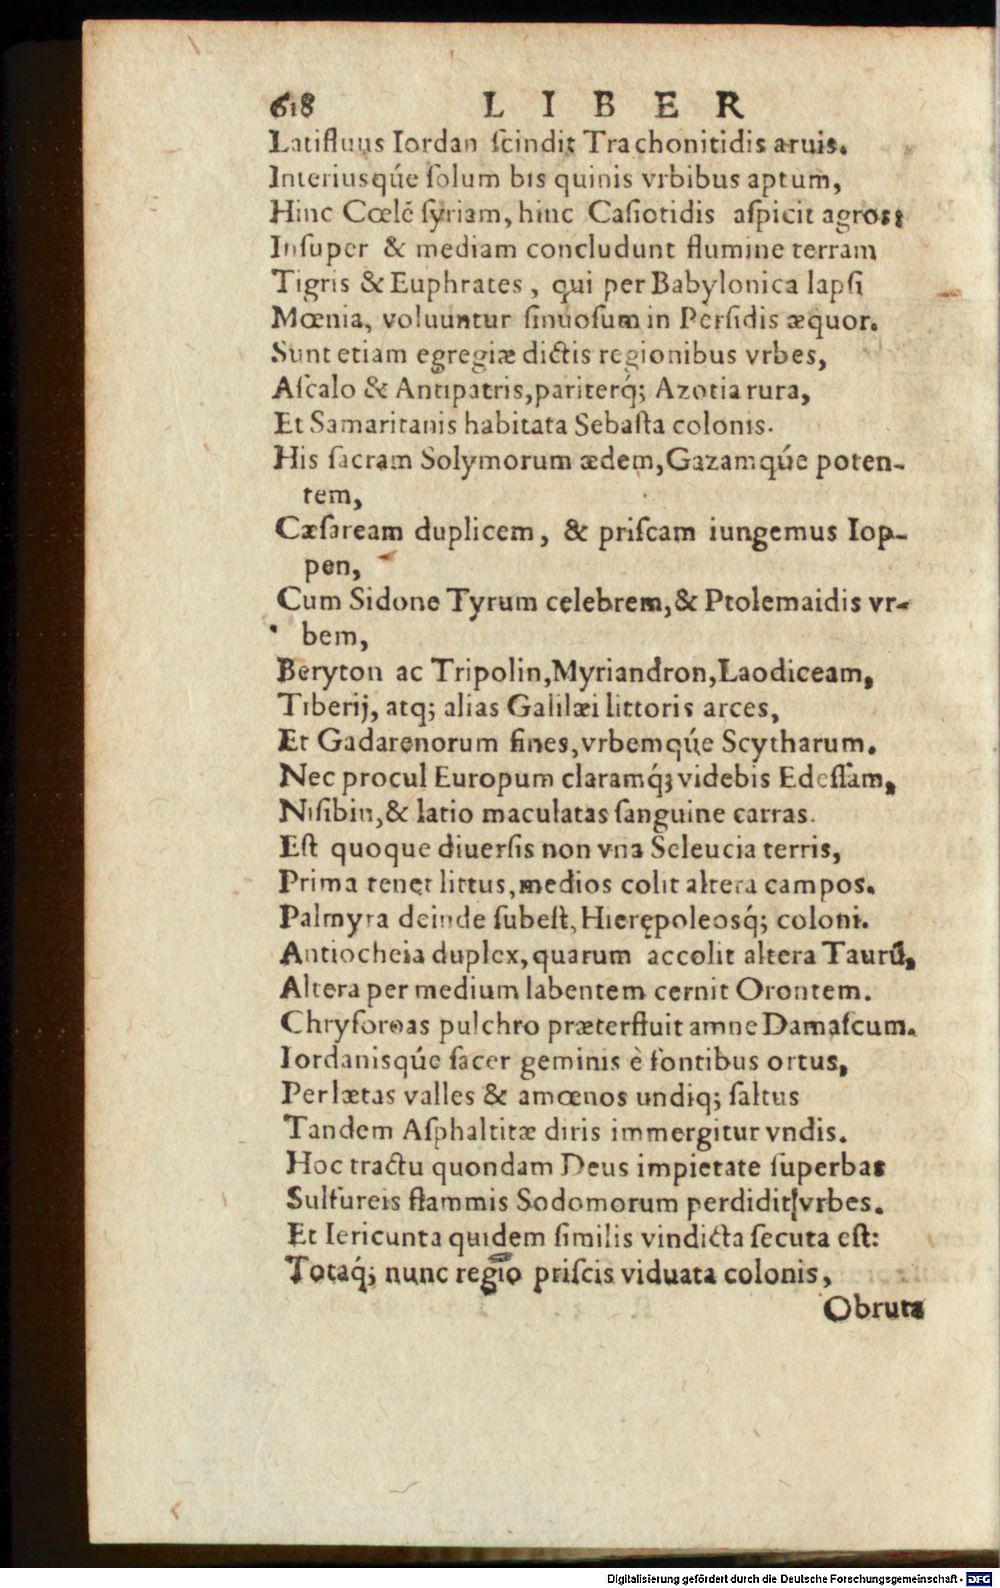 618 LIBER
Latifluus Iordan ſcindit Trachonitidis aruis.
Interiusqúe ſolum bis quinis vrbibus aptum,
Hinc Cœlē ſyriam, hinc Caſiotidis aſpicit agros;
Inſuper & mediam concludunt flumine terram
Tigris & Euphrates, qui per Babylonica lapſi
Mœnia, voluuntur ſinuoſum in Perſidis æquor.
Sunt etiam egregiæ dictis regionibus vrbes,
Aſcalo & Antipatris, pariterq́; Azotia rura,
Et Samaritanis habitata Sebaſta colonis.
His ſacram Solymorum ædem, Gazamqúe poten-
tem,
Cæſaream duplicem, & priſcam iungemus Iop-
pen,
Cum Sidone Tyrum celebrem, & Ptolemaidis vr-
bem,
Beryton ac Tripolin, Myriandron, Laodiceam,
Tiberij, atq; alias Galilæi littoris arces,
Et Gadarenorum fines, vrbemqúe Scytharum.
Nec procul Europum claramq́; videbis Edeſſam,
Niſibin, & latio maculatas ſanguine carras.
Eſt quoque diuerſis non vna Seleucia terris,
Prima tenet littus, medios colit altera campos.
Palmyra deinde ſubeſt, Hierępoleosq́; coloni.
Antiocheia duplex, quarum accolit altera Taurū,
Altera per medium labentem cernit Orontem.
Chryſoroas pulchro præterfluit amne Damaſcum.
Iordanisqúe ſacer geminis è fontibus ortus,
Per lætas valles & amœnos undiq; ſaltus
Tandem Aſphaltitæ diris immergitur vndis.
Hoc tractu quondam Deus impietate ſuperbas
Sulfureis flammis Sodomorum perdidit vrbes.
Et Iericunta quidem ſimilis vindicta ſecuta eſt:
Totaq́; nunc regio priſcis viduata colonis,
Obruta
Digitalisierung gefördert durch die Deutsche Forschungsgemeinschaft - DFG